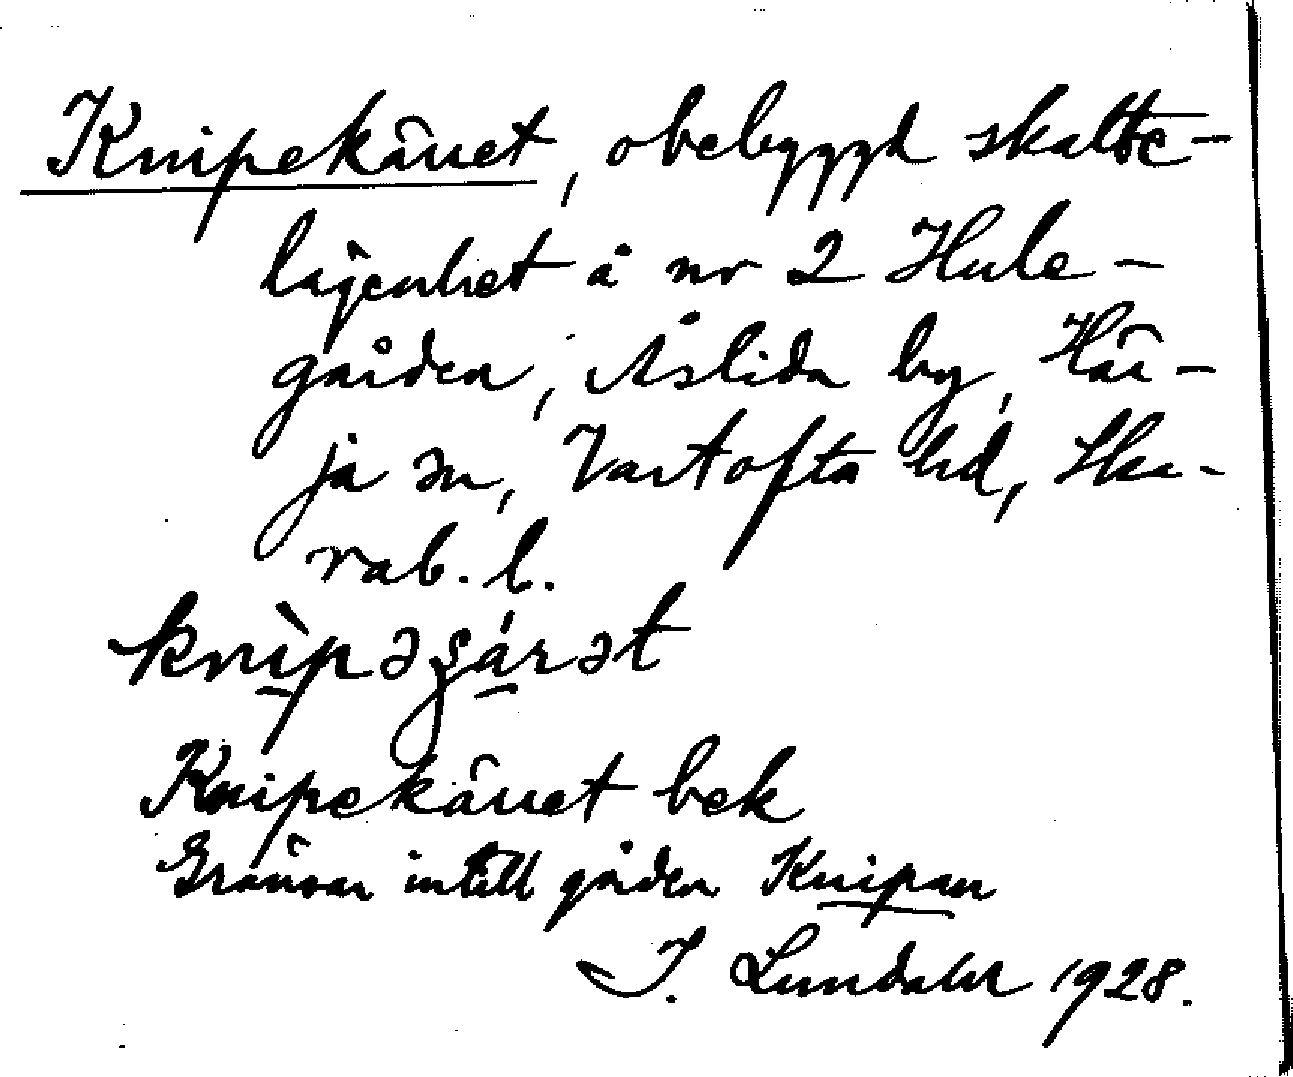 Knipekärret, obebyggd skatte-
lägenhet å nr 2 Hule-
gården, Åslida by, Här-
ja sn, Vartofta hd, Ska-
rab. l.
knìpəʒárət
Knipekärret bek
Gränsar intill gården Knipan
I. Lundahl 1928.